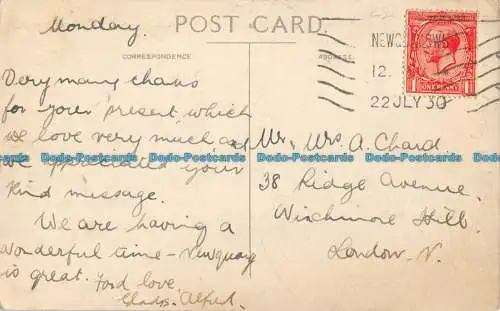 Monday.
POST CARD.
CORRESPONDENCE
ADDRESS
NEWQUAY
12.
22 JLY 30
ONE PENNY
Very many thanks
for your present, which
we love very much and
we appreciated your
kind message.
We are having a
wonderful time - Newquay
is great. Fond love.
Gladys. Alfred.
Mr, Mrs A. Chard
38 Ridge Avenue.
Winchmore Hill.
London. N.
Dodo-Postcards Dodo-Postcards Dodo-Postcards Dodo-Postcards Dodo-Postcards Dodo-Postcards